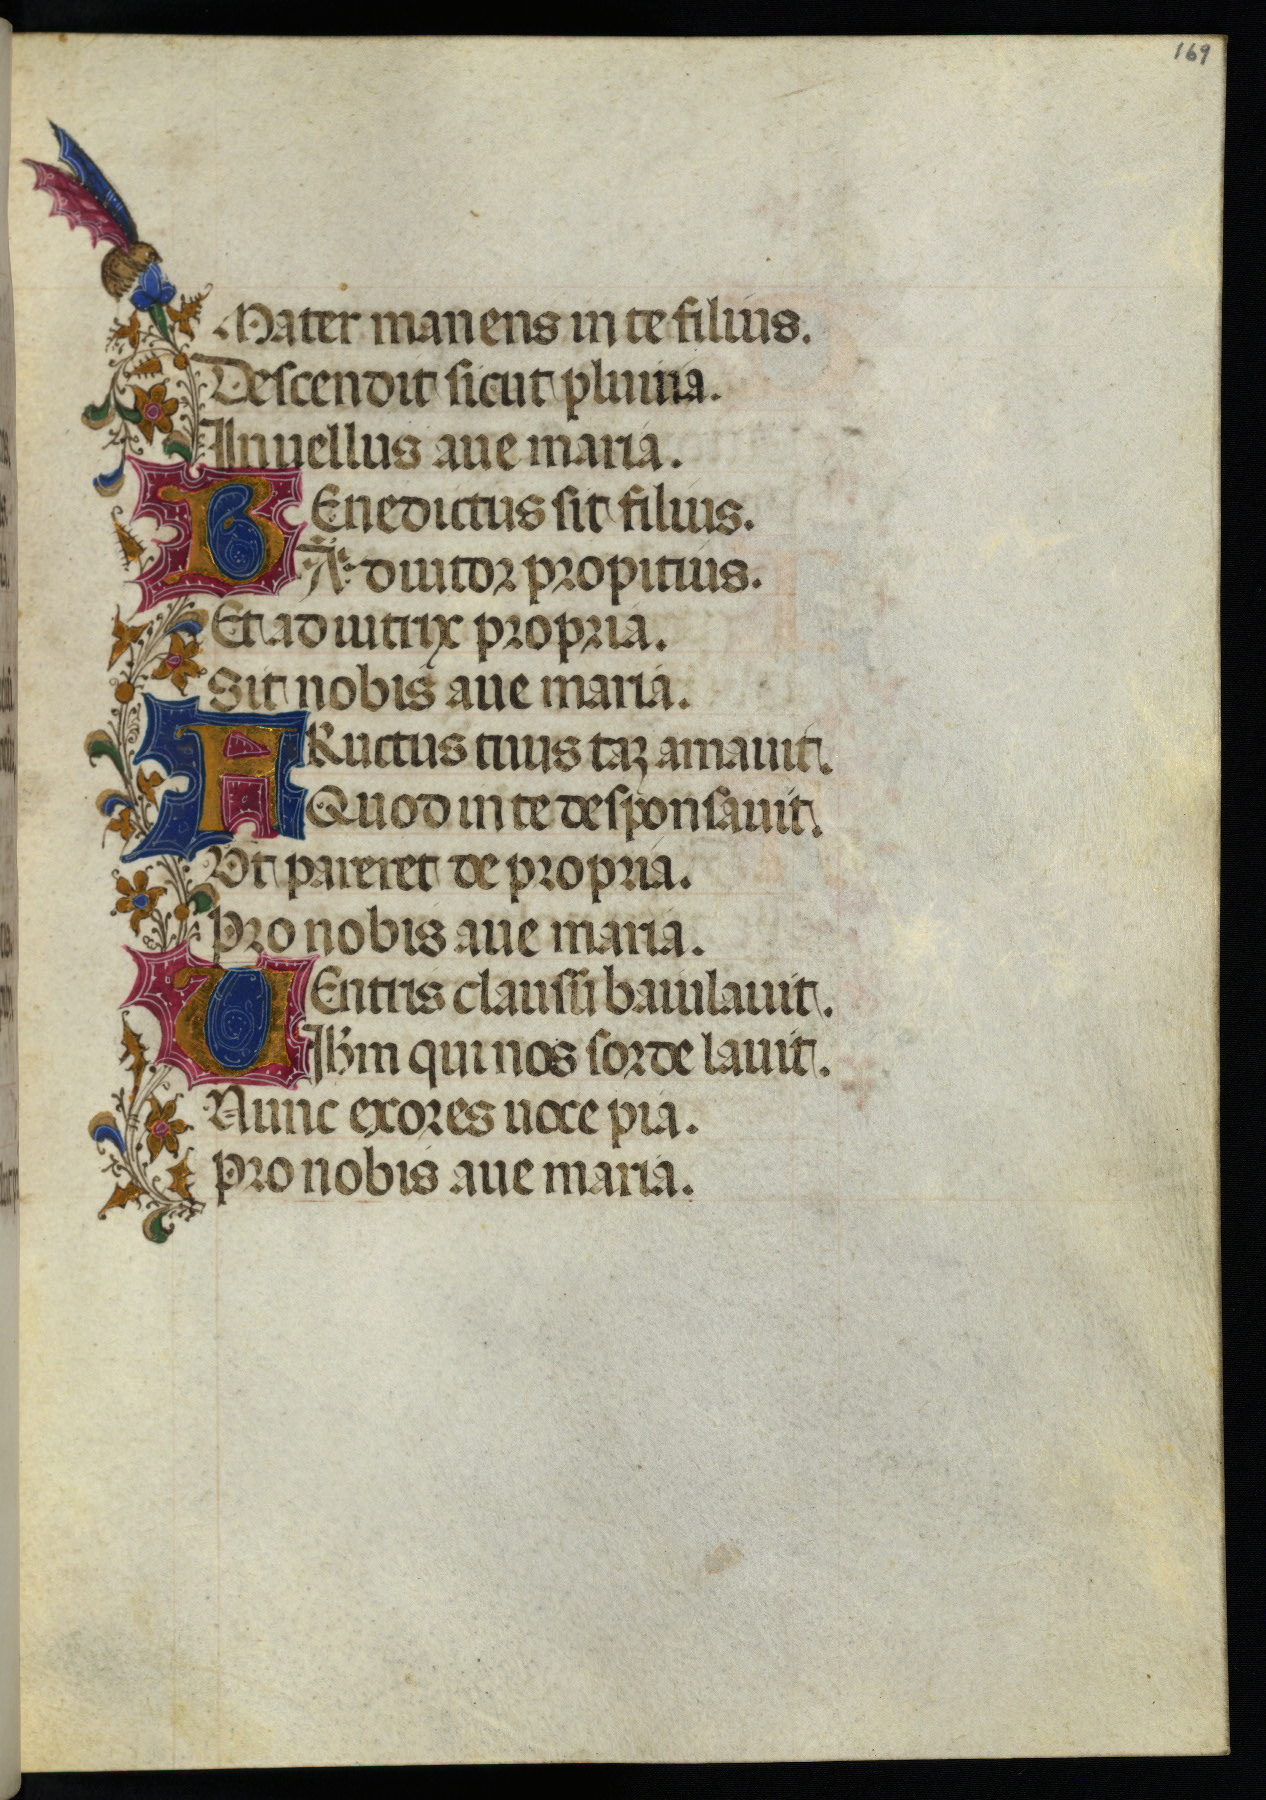 169
Mater manens in te filius.
Descendit sicut pluuia.
In uellus aue maria.
BEnedictus sit filius.
Adiutor propitius.
Et adiutrix propria.
Sit nobis aue maria.
FRuctus tuus taꝫ amauit.
Quod in te desponsauit.
Vt pareret de propria.
Pro nobis aue maria.
VEntris clausũ baiulauit.
Ihm̃ qui nos sorde lauit.
Nunc exores uoce pia.
Pro nobis aue maria.